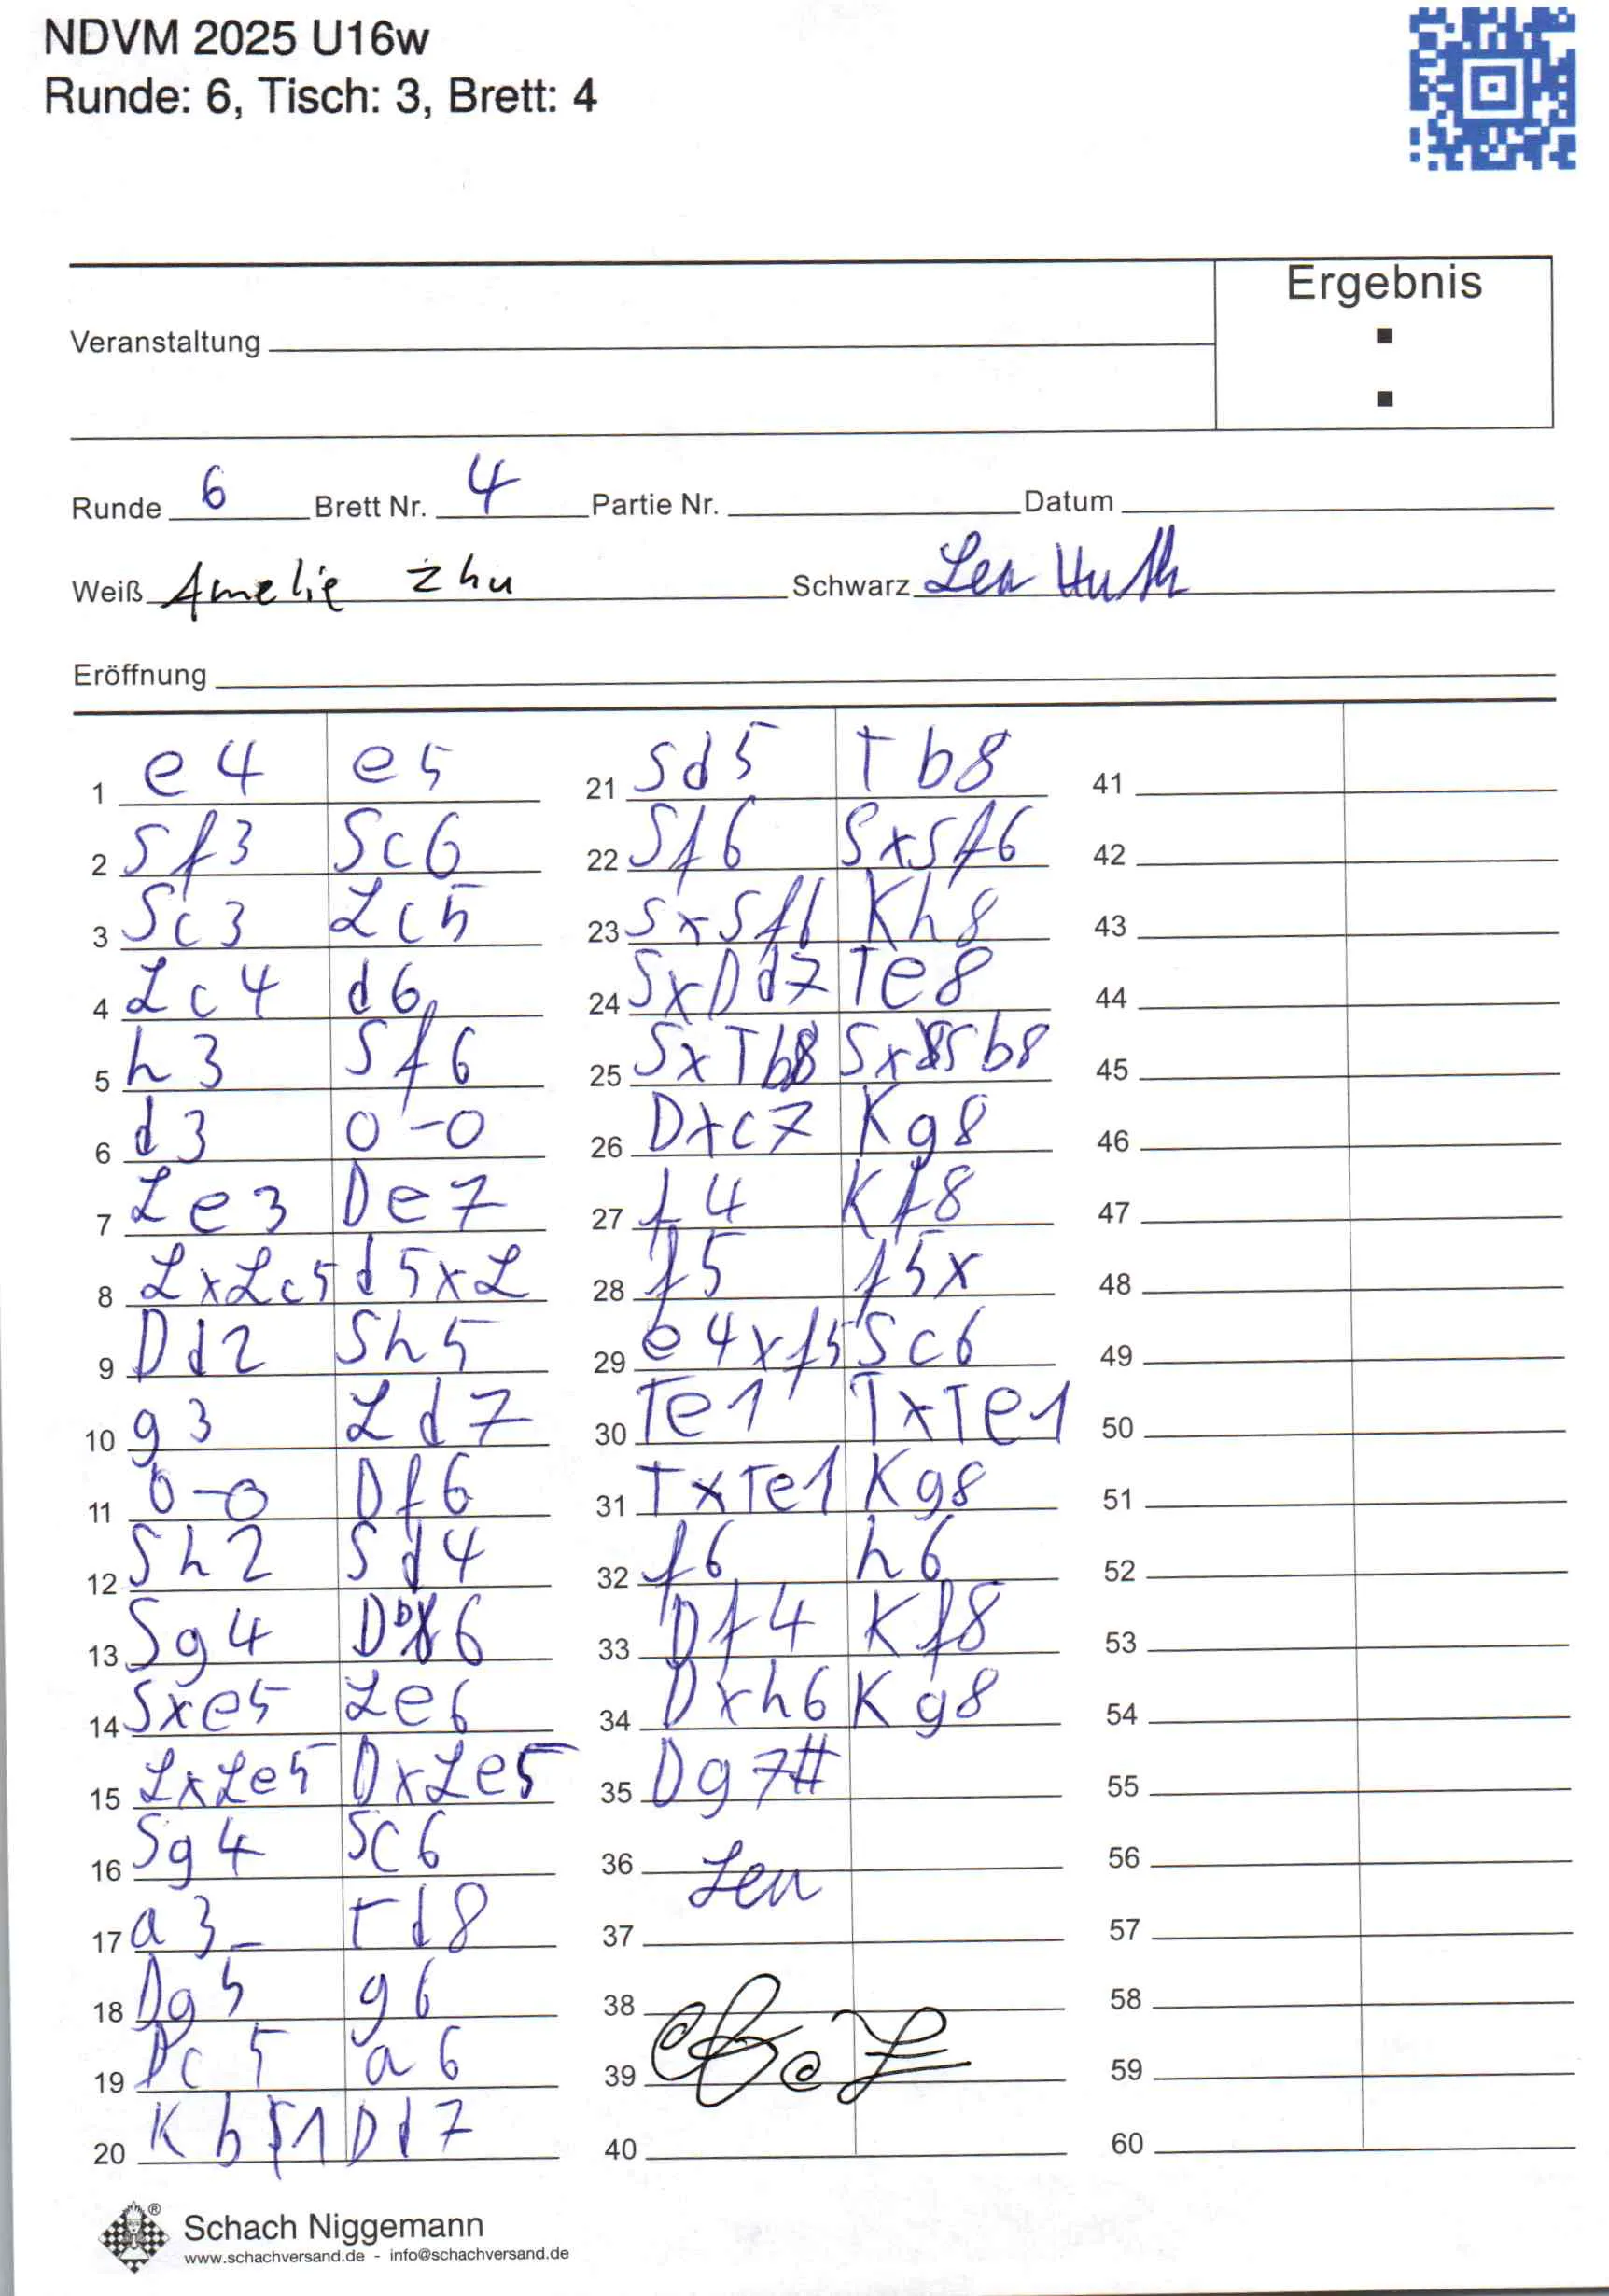 NDVM 2025 U16w
Runde: 6, Tisch: 3, Brett: 4
Ergebnis
:
Veranstaltung
Runde 6 Brett Nr. 4 Partie Nr. Datum
Weiß Amelie Zhu Schwarz Lea Huth
Eröffnung
1 e4 e5
2 Sf3 Sc6
3 Sc3 Lc5
4 Lc4 d6
5 h3 Sf6
6 d3 0-0
7 Le3 De7
8 LxLc5 d5xL
9 Dd2 Sh5
10 g3 Ld7
11 0-0 Df6
12 Sh2 Sd4
13 Sg4 Db6
14 Sxe5 Le6
15 LxLe5 DxLe5
16 Sg4 Sc6
17 a3 Td8
18 Dg5 g6
19 Dc5 a6
20 Kb1 Dd7
21 Sd5 Tb8
22 Sf6 SxSf6
23 SxSf6 Kh8
24 SxDd7 Te8
25 SxTb8 SxSb8
26 Dxc7 Kg8
27 f4 Kf8
28 f5 f5x
29 e4xf5 Sc6
30 Te1 TxTe1
31 TxTe1 Kg8
32 f6 h6
33 Df4 Kf8
34 Dxh6 Kg8
35 Dg7#
36 Lea
37
38
39
40
41
42
43
44
45
46
47
48
49
50
51
52
53
54
55
56
57
58
59
60
®
Schach Niggemann
www.schachversand.de - info@schachversand.de